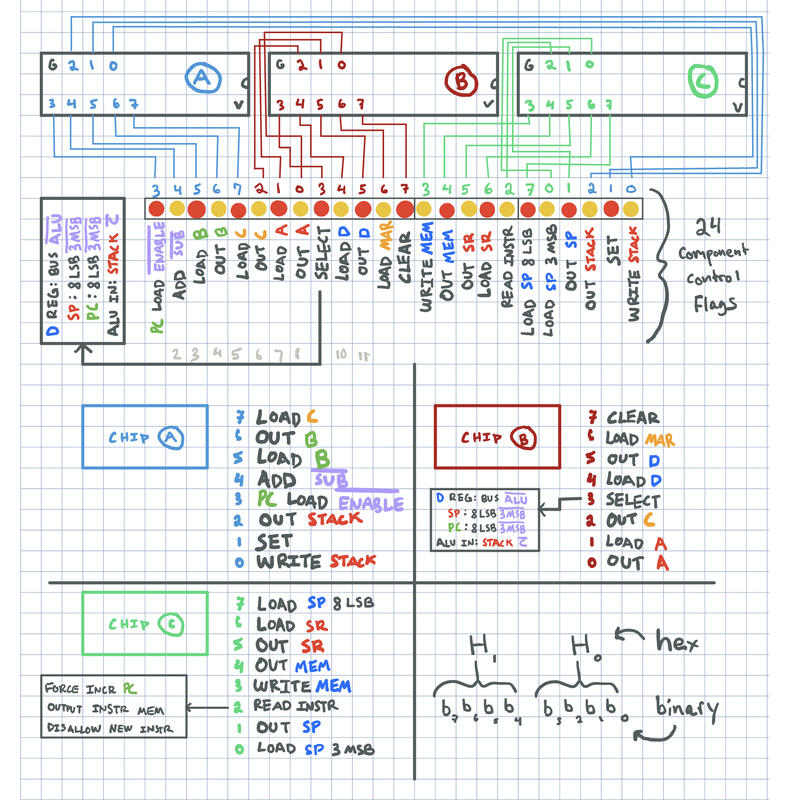 G 2 1 0 A C
3 4 5 6 7 V
G 2 1 0 B C
3 4 5 6 7 V
G 2 1 0 C C
3 4 5 6 7 V
3 4 5 6 7 2 1 0 3 4 5 6 7 3 4 5 6 2 7 0 1 2 1 0
PC LOAD ENABLE
ADD SUB
LOAD B
OUT B
LOAD C
OUT C
LOAD A
OUT A
SELECT
LOAD D
OUT D
LOAD MAR
CLEAR
WRITE MEM
OUT MEM
OUT SR
LOAD SR
READ INSTR
LOAD SP 8 LSB
LOAD SP 3 MSB
OUT SP
OUT STACK
SET
WRITE STACK
D REG: BUS ALU
SP: 8 LSB 3MSB
PC: 8 LSB 3MSB
ALU IN: STACK Z
24
Component
Control
Flags
2 3 4 5 6 7 8 10 11
CHIP A
7 LOAD C
6 OUT B
5 LOAD B
4 ADD SUB
3 PC LOAD ENABLE
2 OUT STACK
1 SET
0 WRITE STACK
CHIP B
7 CLEAR
6 LOAD MAR
5 OUT D
4 LOAD D
3 SELECT
2 OUT C
1 LOAD A
0 OUT A
D REG: BUS ALU
SP: 8LSB 3MSB
PC: 8LSB 3MSB
ALU IN: STACK Z
CHIP C
7 LOAD SP 8 LSB
6 LOAD SR
5 OUT SR
4 OUT MEM
3 WRITE MEM
2 READ INSTR
1 OUT SP
0 LOAD SP 3 MSB
FORCE INCR PC
OUTPUT INSTR MEM
DISALLOW NEW INSTR
H1 H0 hex
b7 b6 b5 b4 b3 b2 b1 b0 binary